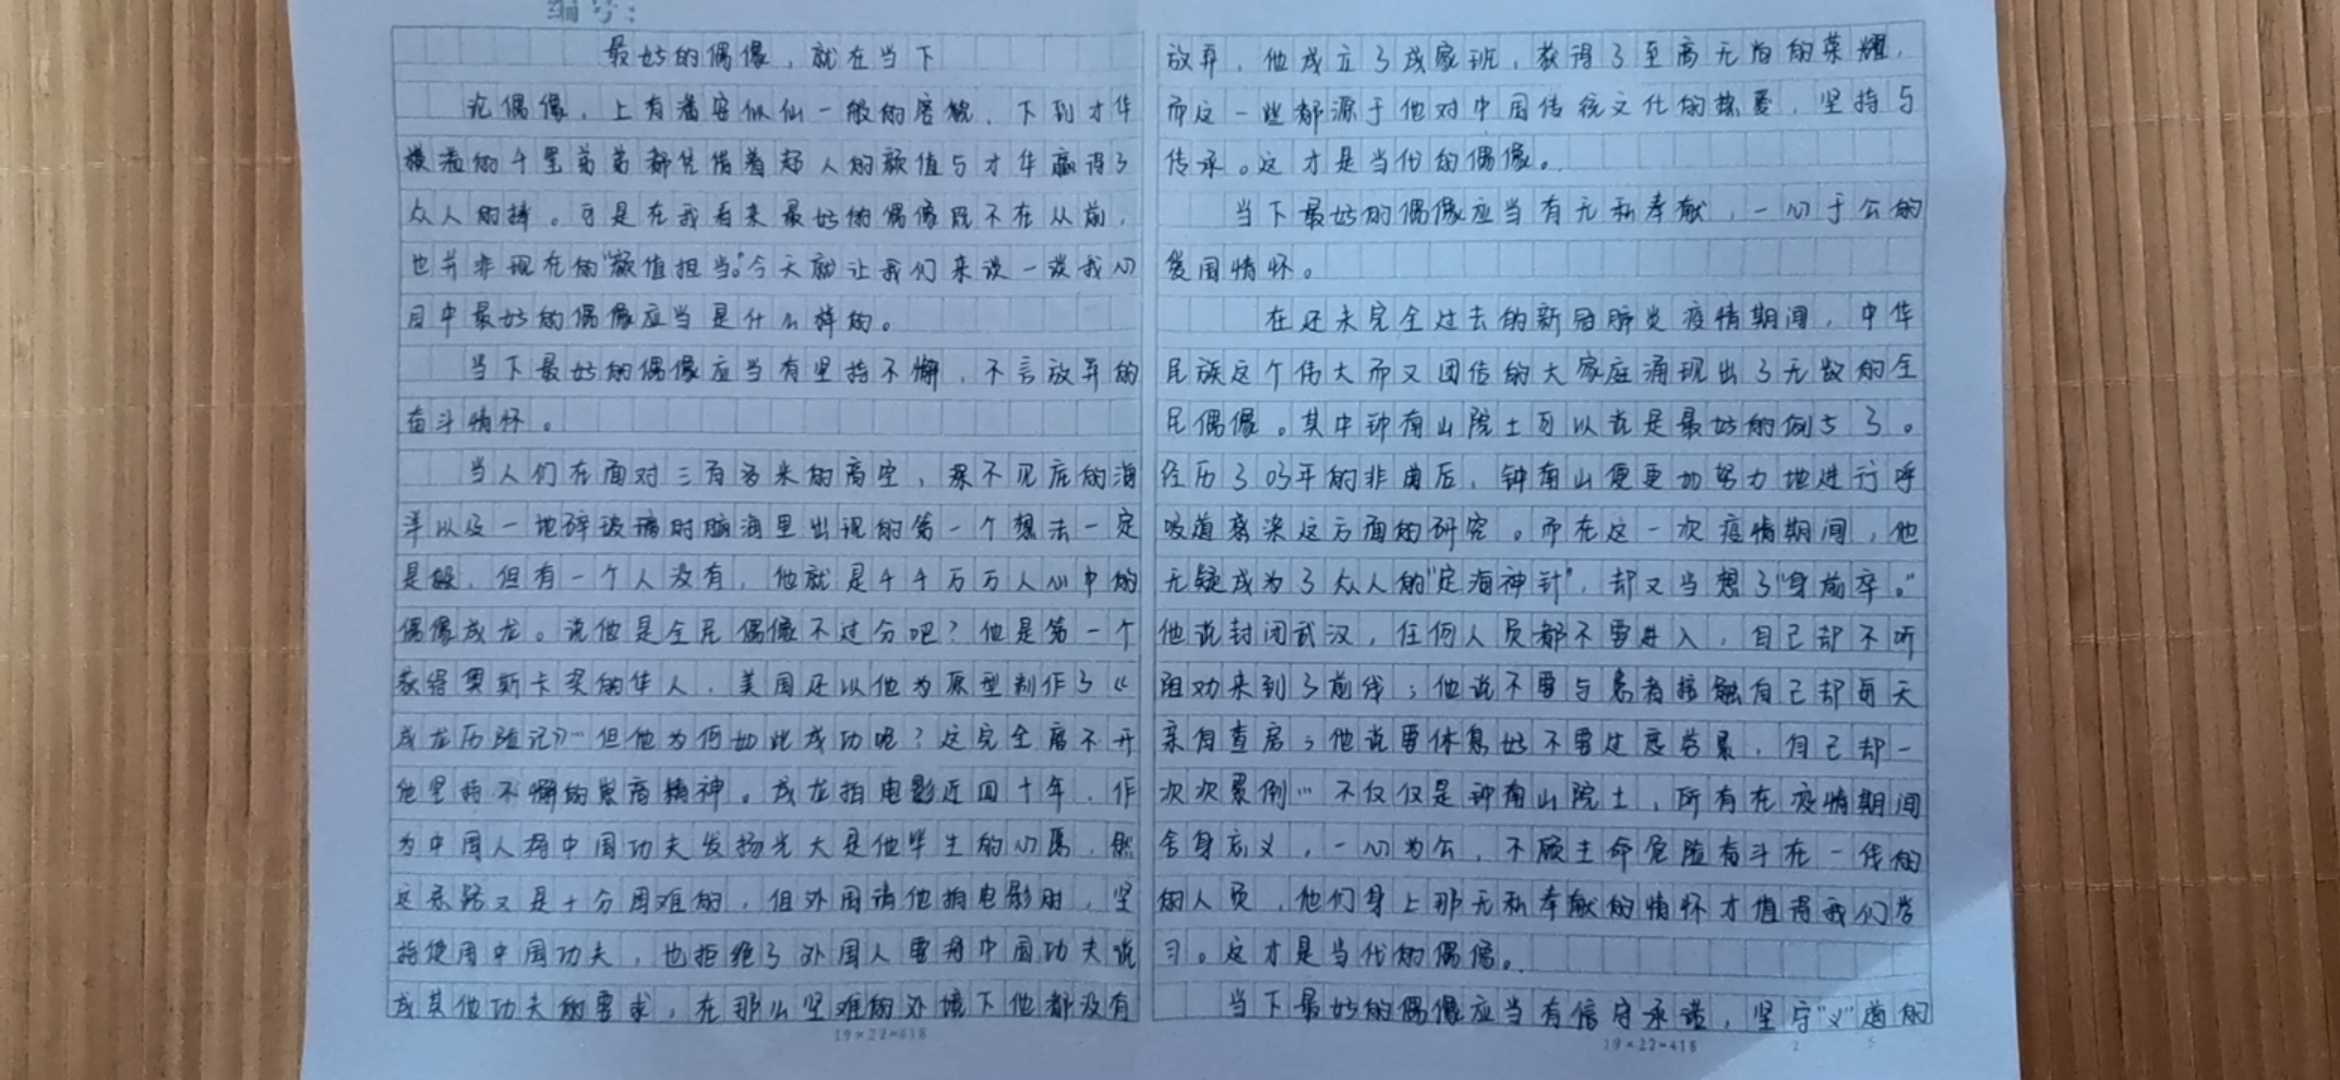 编号:
最好的偶像,就在当下
论偶像,上有潘安似仙一般的容貌,下到才华
横溢的千玺弟弟都凭借着超人的颜值与才华赢得了
众人的捧。可是在我看来最好的偶像既不在从前,
也并非现在的“颜值担当。”今天就让我们来谈一谈我心
目中最好的偶像应当是什么样的。
当下最好的偶像应当有坚持不懈,不言放弃的
奋斗情怀。
当人们在面对三百多米的高空,深不见底的海
洋以及一地碎玻璃时脑海里出现的第一个想法一定
是,但有一个人没有,他就是千千万万人心中的
偶像成龙。说他是全民偶像不过分吧?他是第一个
获得奥斯卡奖的华人,美国还以他为原型制作了《
成龙历险记》…但他为何如此成功呢?这完全离不开
他坚持不懈的崇高精神。成龙拍电影近四十年,作
为中国人将中国功夫发扬光大是他毕生的心愿,然
这条路又是十分困难的,但外国请他拍电影时,坚
持使用中国功夫,也拒绝了外国人要将中国功夫说
成其他功夫的要求,在那么坚难的外境下他都没有
放弃,他成立了成家班,获得了至高无尚的荣耀,
而这一些都源于他对中国传统文化的热爱,坚持与
传承。这才是当代的偶像。
当下最好的偶像应当有无私奉献,一心于公的
爱国情怀。
在还未完全过去的新冠肺炎疫情期间,中华
民族这个伟大而又团结的大家庭涌现出了无数的全
民偶像。其中钟南山院士可以说是最好的例子了。
经历了03年的非典后,钟南山便更加努力地进行呼
吸道感染这方面的研究。而在这一次疫情期间,他
无疑成为了众人的“定海神针”,却又当想了“身前卒。”
他说封闭武汉,任何人员都不要进入,自己却不听
阻劝来到了前线;他说不要与患者接触自己却每天
亲自查房;他说要休息好不要过度劳累,自己却一
次次累倒…不仅仅是钟南山院士,所有在疫情期间
舍身忘义,一心为公,不顾生命危险奋斗在一线的
的人员,他们身上那无私奉献的情怀才值得我们学
习。这才是当代的偶像。
当下最好的偶像应当有信守承诺,坚守“义”道的
19×22=418
19×22=418